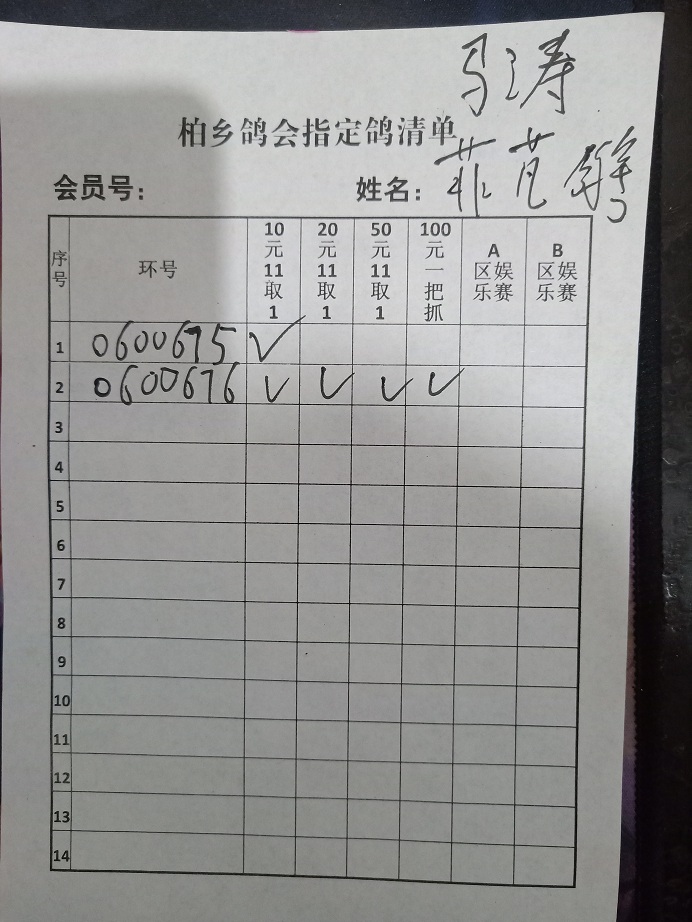 马涛
柏乡鸽会指定鸽清单
会员号： 姓名：
序号 环号 10元11取1 20元11取1 50元11取1 100元一把抓 A区娱乐赛 B区娱乐赛
1 0600675 ✓
2 0600676 ✓ ✓ ✓ ✓
3
4
5
6
7
8
9
10
11
12
13
14